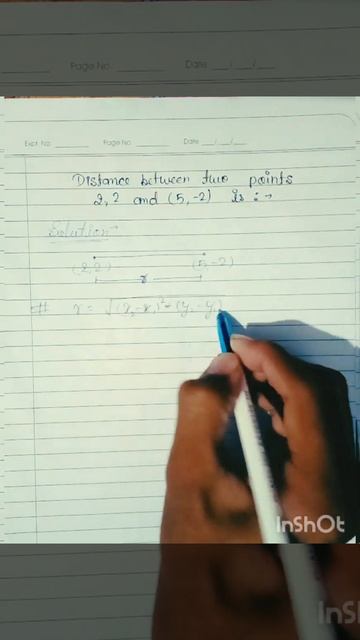 Page No. Date / /
Expt. No. Page No. Date / /
Distance between two points
2, 2 and (5, -2) is :→
Solution→
(2, 2) (5, -2)
r
# r = √(x₂-x₁)²+(y₂-y₁)
InShOt
InSh